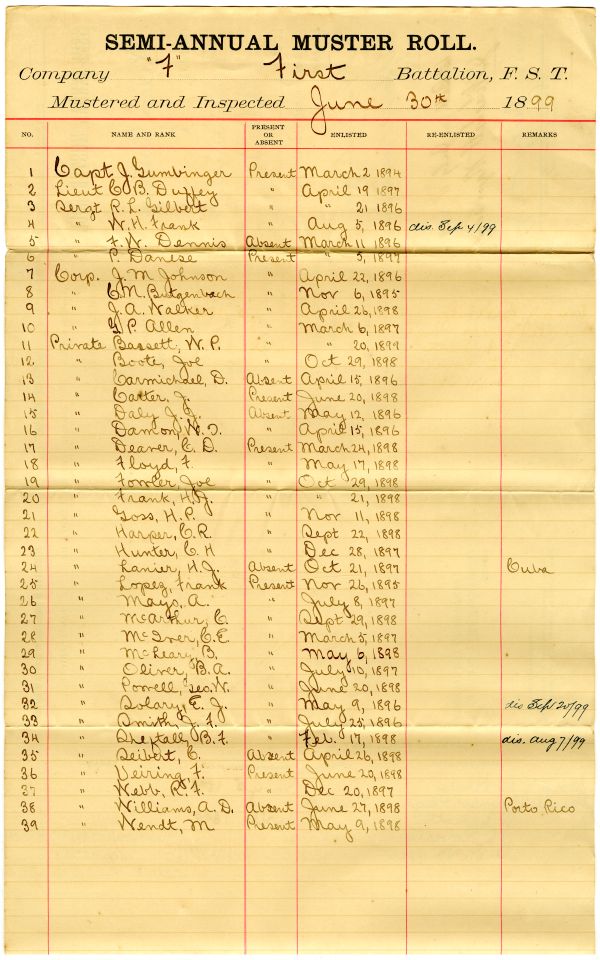 SEMI-ANNUAL MUSTER ROLL.
Company "F" First Battalion, F. S. T.
Mustered and Inspected June 30th 1899
NO. NAME AND RANK PRESENT OR ABSENT ENLISTED RE-ENLISTED REMARKS
1 Capt J. Gumbinger Present March 2 1894
2 Lieut C. B. Duffey " April 19 1897
3 Sergt R. L. Gilbert " " 21 1896
4 " W. H. Frank " Aug 5, 1896 dis. Sep 4/99
5 " F. W. Dennis Absent March 11 1896
6 " P. Danese Present " 5, 1897
7 Corp. J. M Johnson " April 22, 1896
8 " C. M. Butgenbach " Nov 6, 1895
9 " J. A. Walker " April 26, 1898
10 " G. P. Allen " March 6, 1897
11 Private Bassett, W. P. " " 20, 1899
12 " Boote, Joe " Oct 29, 1898
13 " Carmichael, D. Absent April 15, 1896
14 " Catter, J. Present June 20, 1898
15 " Daly J. J. Absent May 12, 1896
16 " Damon, W. " April 15, 1896
17 " Deaver, C. D. Present March 24, 1898
18 " Floyd, F. " May 17, 1898
19 " Fowler, Joe " Oct 29, 1898
20 " Frank, H. J. " " 21, 1898
21 " Goss, H. P. " Nov 11, 1898
22 " Harper, C. R. " Sept 22, 1898
23 " Hunter, C. H " Dec 28, 1897
24 " Lanier, H. J. Absent Oct 21, 1897 Cuba
25 " Lopez, Frank Present Nov 26, 1895
26 " Mays, A. " July 8, 1897
27 " McArthur, C. " Sept 29, 1898
28 " McIver, C. E. " March 5, 1897
29 " McLeary, B. " May 6, 1898
30 " Oliver, B. A. " July 10, 1897
31 " Powell, Geo. W. " June 20, 1898
32 " Solary, E. J. " May 9, 1896 dis Sep 20/99
33 " Smith, J. F. " July 25, 1896
34 " Sheftall B. F. " Feb. 17, 1898 dis. Aug 7/99
35 " Seibert, C. Absent April 26, 1898
36 " Veiring, F. Present June 20, 1898
37 " Webb, R. F. " Dec 20, 1897
38 " Williams, A. D. Absent June 27, 1898 Porto Rico
39 " Wendt, M Present May 9, 1898